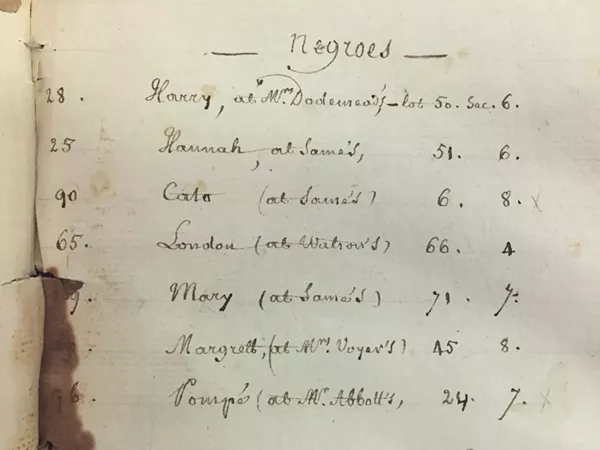 — Negroes —
28. Harry, at Mrs. Dodemead's, - lot 50. Sec. 6.
25 Hannah, at Same's, 51. 6.
90 Cato (at Same's) 6. 8. x
65. London (at Watson's) 66. 4
9. Mary (at Same's) 71. 7.
Margrett, (at Mrs. Voyer's) 45 8.
6. Pompé (at Mr. Abbott's, 24. 7. x